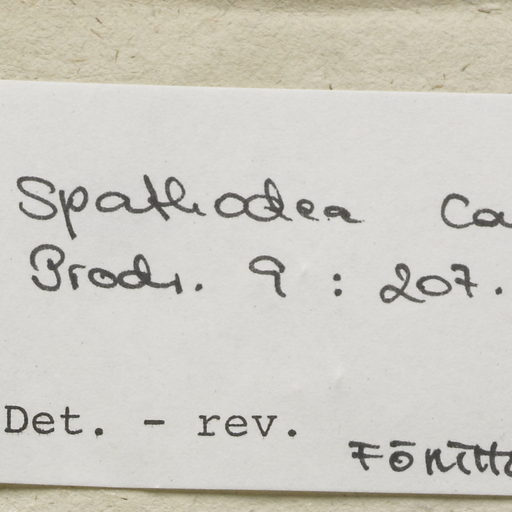 Spathodea Ca
Prodr. 9 : 207.
Det. - rev.